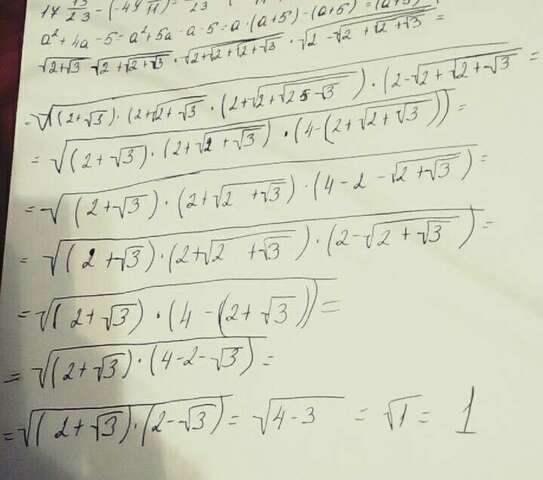 a² + 4a - 5 = a² + 5a - a - 5 = a · (a + 5) - (a + 5) =
√(2+√3) · √(2+√(2+√3)) · √(2+√(2+√(2+√3))) · √(2-√(2+√(2+√3))) =
= √((2+√3) · (2+√(2+√3)) · (2+√(2+√(2+√3))) · (2-√(2+√(2+√3)))) =
= √((2+√3) · (2+√(2+√3)) · (4-(2+√(2+√3)))) =
= √((2+√3) · (2+√(2+√3)) · (4-2-√(2+√3))) =
= √((2+√3) · (2+√(2+√3)) · (2-√(2+√3))) =
= √((2+√3) · (4-(2+√3))) =
= √((2+√3) · (4-2-√3)) =
= √((2+√3) · (2-√3)) = √(4-3) = √1 = 1